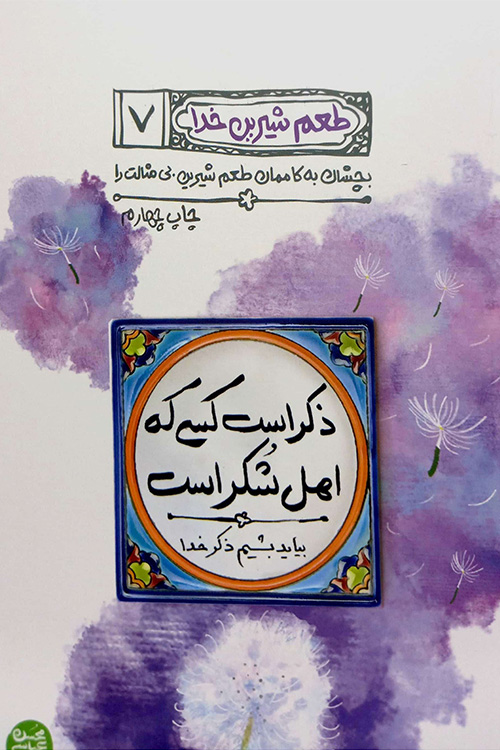 طعم شیرین خدا
۷
بچشان به کاممان طعم شیرین بی مثالت را
چاپ چهارم
ذکر است کسی که
اهل شُکر است
بیایید بشیم ذکر خدا